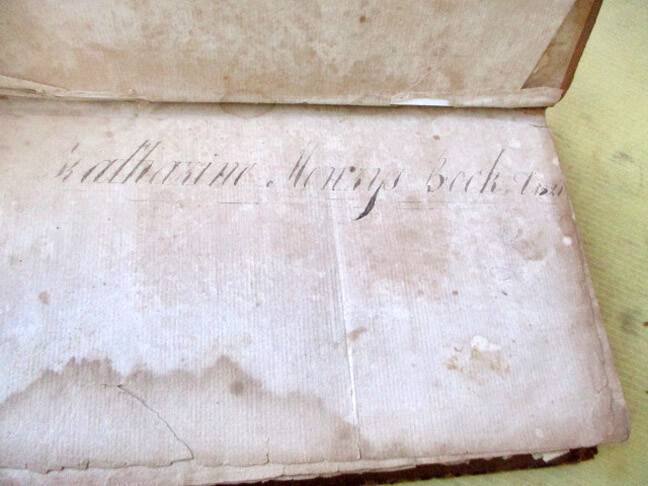 Katharine Henrys Book